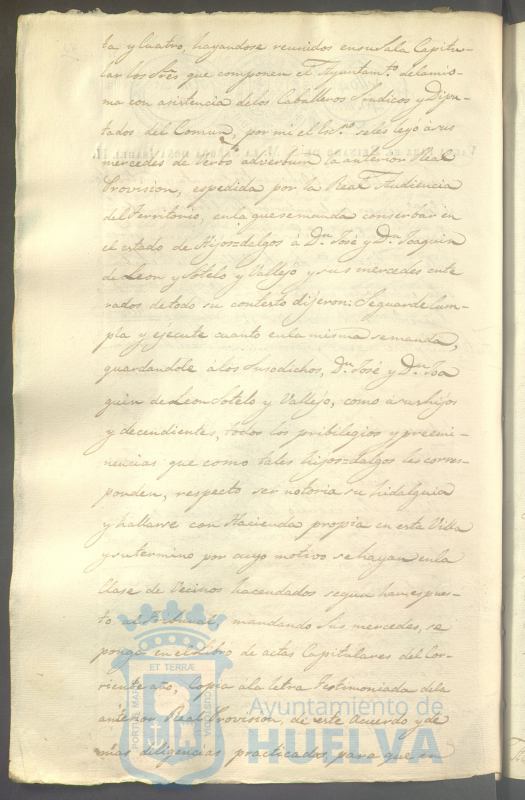 ta y cuatro, hayandose reunidos en su Sala Capitu-
lar los Sres que componen el Ayuntam.to de la mis-
ma con asistencia de los Caballeros Sindicos y Dipu-
tados del Comun, por mi el Es.no se les leyó á sus
mercedes de Verbo adverbum la anterior Real
Provision, espedida por la Real Audiencia
del Territorio, en la que se manda conserbar en
el estado de Hijos=dalgos á Dn. José y Dn. Joaquin
de Leon y Sotelo y Vallejo, y sus mercedes ente
rados de todo su contesto dijeron: Se guarde cum-
pla y ejecute cuanto en la misma se manda,
guardandole á los Susodichos, Dn. José y Dn. Joa
quin de Leon Sotelo y Vallejo, como á sus hijos
y decendientes, todos los pribilegios y preemi-
nencias que como tales hijos=dalgos les corres-
ponden, respecto ser notoria su hidalguia
y hallarse con Hacienda propia en esta Villa
y su termino por cuyo motivo se hayan en la
Clase de Vecinos hacendados segun han espues-
to al tribunal, mandando Sus mercedes, se
ponga en el Libro de actas Capitulares del Cor-
riente año, Copia á la letra testimoniada de la
anterior Real Provision, de este Acuerdo y de
mas diligencias practicadas, para que en
PORTUS MARIS
ET TERRÆ
CUSTODIA
Ayuntamiento de
HUELVA